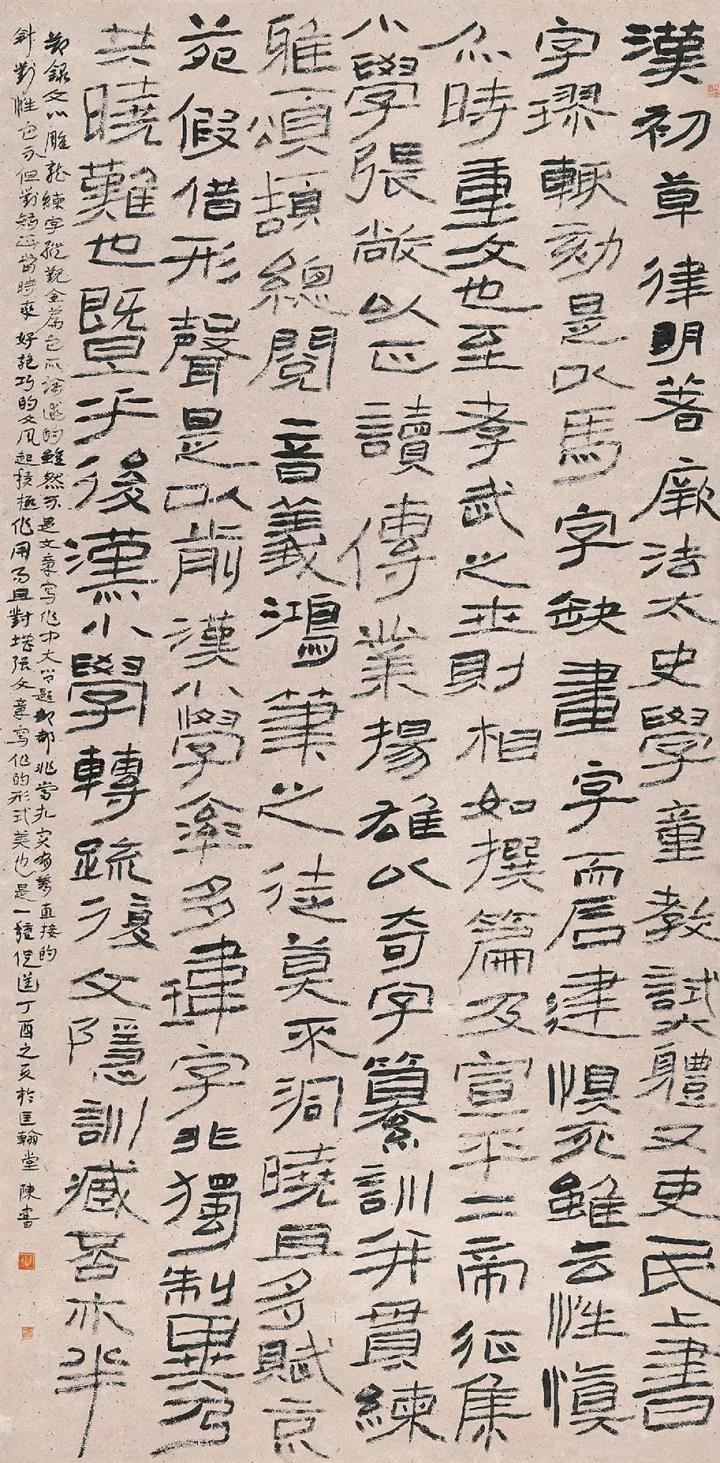 漢初草律明著厥法太史學童教試體又吏民上書
字謬輒劾是以馬字缺畫字而石建懼死雖云性慎
亦時重文也至孝武之世則相如撰篇及宣平二帝征集
小學張敞以正讀傳業揚雄以奇字纂訓并貫練
雅頌頡總閱音義鴻筆之徒莫不洞曉且多賦京
苑假借形聲是以前漢小學率多瑋字非獨制異乃
共曉難也既早乎後漢小學轉疏復文隱訓臧否亦半
節錄文心雕龍練字縱觀全篇它所論述的雖然不是文章寫作中大問題卻都非常扎實有著直接的
針對性它不但對矯正當時愛好詭巧的文風起積極作用而且對增強文章寫作的形式美也是一種促進丁酉之夏於匡翰堂陳書